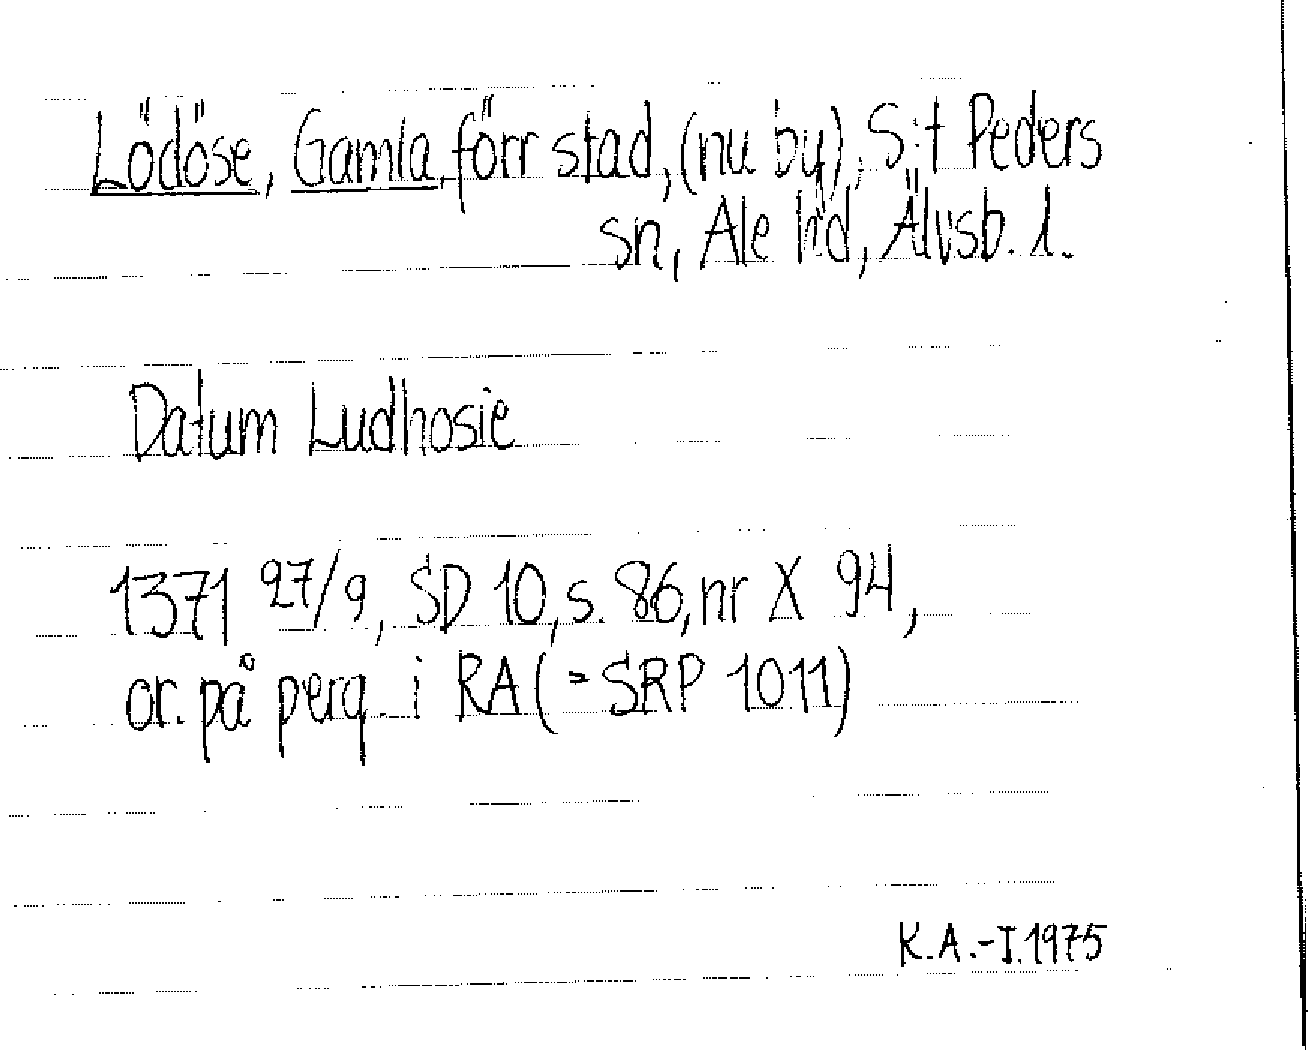 Lödöse, Gamla, förr stad, (nu by), S:t Peders
sn, Ale hd, Älvsb. l.
Datum Ludhosie
1371 27/9, SD 10, s. 86, nr X 94,
or. på perg. i RA (= SRP 1011)
K.A.-I. 1975